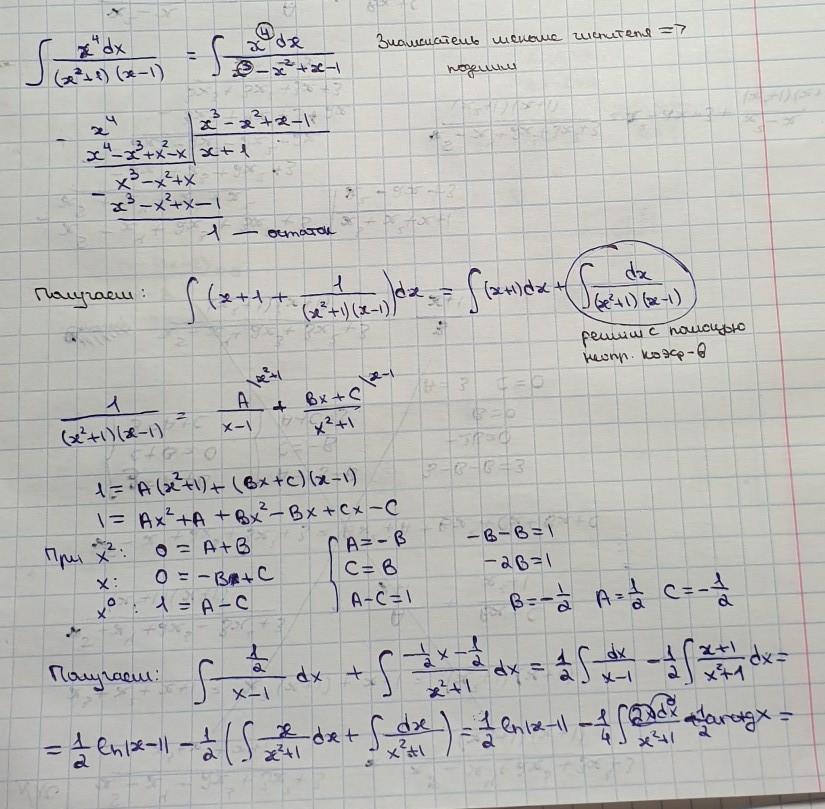 ∫ x⁴dx / (x²+1)(x-1) = ∫ x⁴dx / x³-x²+x-1 Знаменатель меньше числителя =>
поделим
- x⁴ | x³-x²+x-1
x⁴-x³+x²-x | x+1
- x³-x²+x
x³-x²+x-1
1 — остаток
Получаем: ∫(x+1+ 1/(x²+1)(x-1))dx = ∫(x+1)dx + ∫ dx/(x²+1)(x-1)
решим с помощью
неопр. коэф-в
1/(x²+1)(x-1) = A/(x-1) \x²+1 + (Bx+C)/(x²+1) \x-1
1 = A(x²+1)+(Bx+C)(x-1)
1 = Ax²+A+Bx²-Bx+Cx-C
При x²: 0 = A+B { A=-B -B-B=1
x: 0 = -B+C C=B -2B=1
x⁰: 1 = A-C A-C=1 B=-1/2 A=1/2 C=-1/2
Получаем: ∫ (1/2)/(x-1) dx + ∫ (-1/2 x - 1/2)/(x²+1) dx = 1/2 ∫ dx/(x-1) - 1/2 ∫ (x+1)/(x²+1) dx =
= 1/2 ln|x-1| - 1/2 (∫ x/(x²+1) dx + ∫ dx/(x²+1)) = 1/2 ln|x-1| - 1/4 ∫ 2xdx/(x²+1) - 1/2 arctgx =